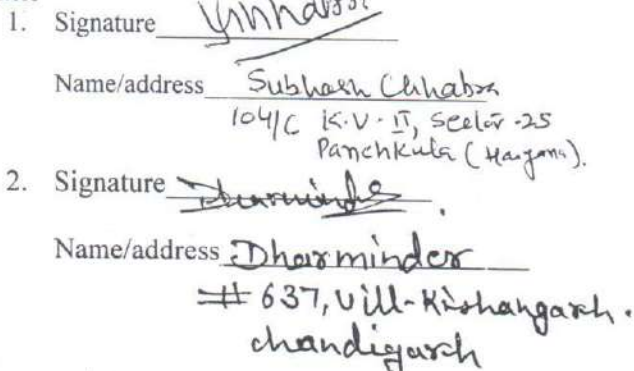 1. Signature
Name/address Subhash Chhabra
104/C K.V. II, Sector-25
Panchkula (Haryana).
2. Signature Dharminder
Name/address Dharminder
# 637, Vill-Kishangarh.
chandigarh